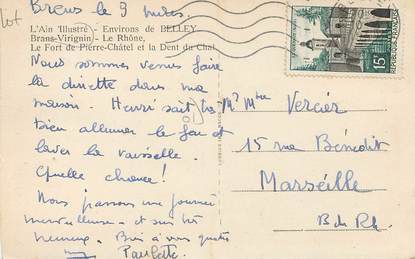 le 9
L'Ain Illustré - Environs de BELLEY
Brens-Virignin - Le Rhône,
Le Fort de Pierre-Châtel et la Dent du Chat
Nous sommes venus faire
la dinette dans ma
maison. Henri sait très
bien allumer le feu et
laver la vaisselle.
Quelle chance!
Nous passons une journée
merveilleuse et
heureux. à vous quatre
Paulette
15F
Mr Mme Vercier
15 rue Bénédit
Marseille
B du Rh